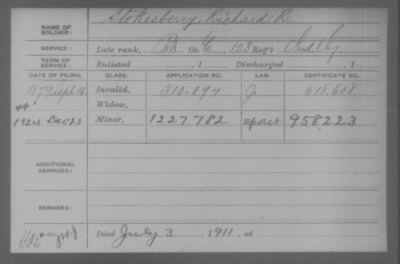 NAME OF SOLDIER: Stokesberry, Richard R.
SERVICE: Late rank, Co. E, 123 Reg't Ind
TERM OF SERVICE: Enlisted , 1 Discharged , 1
DATE OF FILING. CLASS. APPLICATION NO. LAW. CERTIFICATE NO.
1879 Invalid, 310,094 618,608
Widow,
1924 Dec 23 Minor, 1227782 958223
ADDITIONAL SERVICES:
REMARKS:
Died July 3 , 1911, at